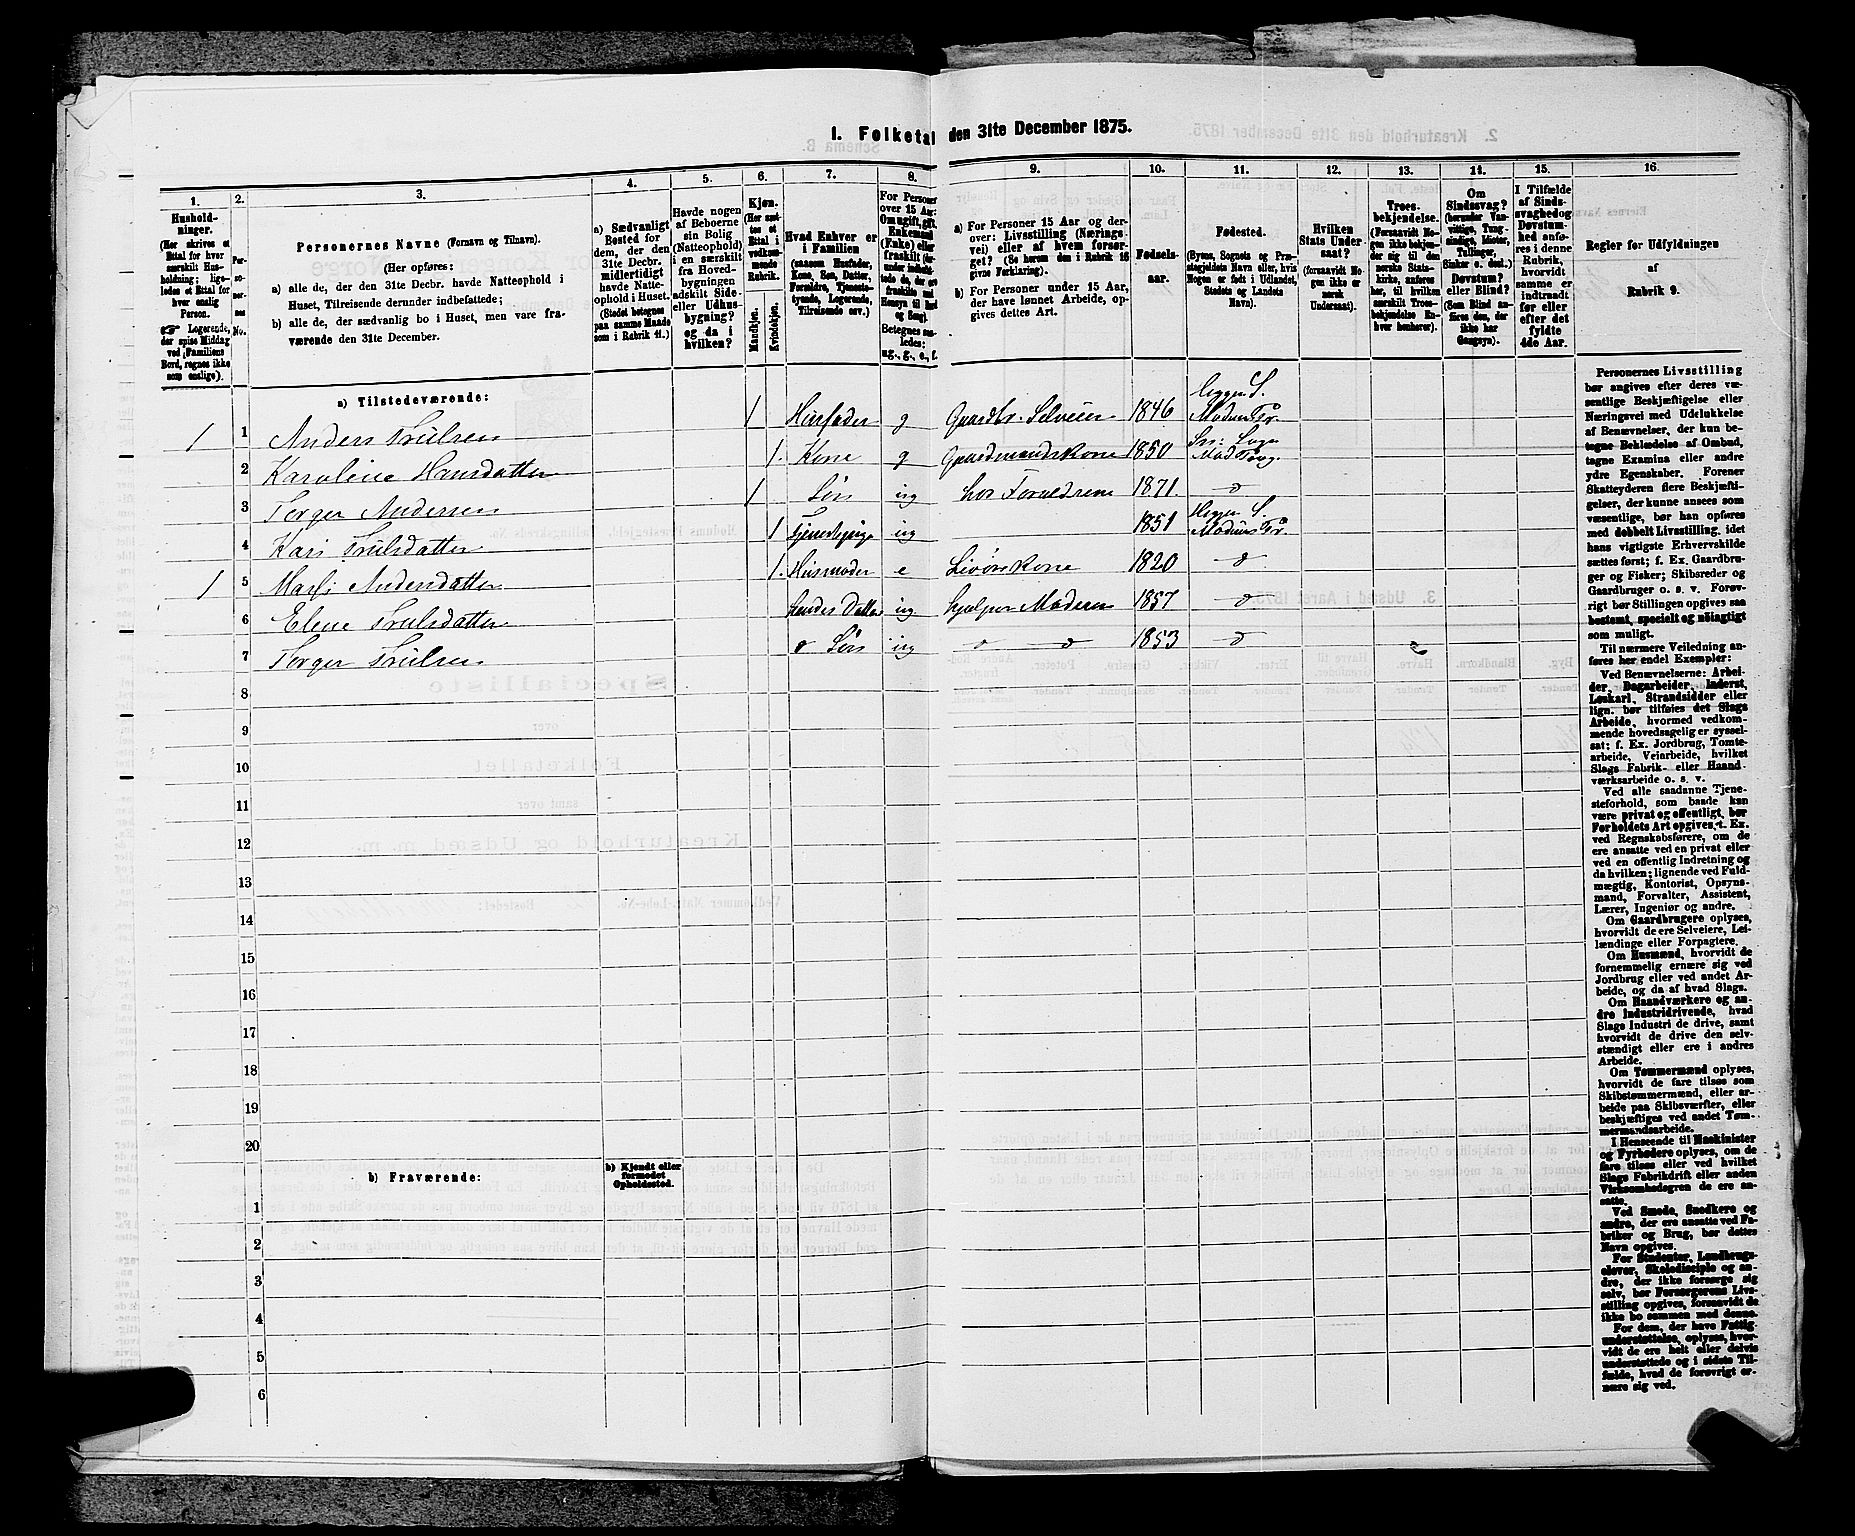 1. Folketal den 31te December 1875.
1. 2. 3. 4. 5. 6. 7. 8. 9. 10. 11. 12. 13. 14. 15. 16.
Hushold-
ninger.
(Her skrives et
Ettal for hver
særskilt Hus-
holdning; lige-
ledes et Ettal for
hver enslig
Person.
☞ Logerende,
der spise Middag
ved Familiens
Bord, regnes ikke
som enslige).
Per-
so-
ner-
nes
No.
Personernes Navne (Fornavn og Tilnavn).
(Her opføres:
a) alle de, der den 31te Decbr. havde Natteophold i
Huset, Tilreisende derunder indbefattede;
b) alle de, der sædvanlig bo i Huset, men vare fra-
værende den 31te December.
a) Sædvanligt
Bosted for
dem, der den
31te Decbr.
midlertidigt
havde Natte-
ophold i Huset.
(Stedet betegnes
paa samme Maade
som i Rubrik 11.)
Havde nogen
af Beboerne
sin Bolig
(Natteophold)
i en særskilt
fra Hoved-
bygningen
adskilt Side-
eller Udhus-
bygning?
og da i
hvilken?
Kjøn.
(Her sæt-
tes et
Ettal i
vedkom-
mende
Rubrik.
Mandkjøn.
Kvindekjøn.
Hvad Enhver er
i Familien
(saasom Husfader,
Kone, Søn, Datter,
Forældre, Tjeneste-
tyende, Logerende,
Tilreisende osv.)
For Personer
over 15 Aar:
Om ugift, gift,
Enkemand
(Enke) eller
fraskilt
Betegnes saa-
ledes:
ug., g., e., f.
a) For Personer 15 Aar og der-
over: Livsstilling (Nærings-
vei) eller af hvem forsør-
get? (Se herom den i Rubrik 16
givne Forklaring).
b) For Personer under 15 Aar,
der have lønnet Arbeide, op-
gives dettes Art.
Fødsels-
aar.
Fødested.
(Byens, Sognets og Præ-
stegjeldets Navn eller, hvis
Nogen er født i Udlandet,
Stedets og Landets
Navn).
Hvilken
Stats Under-
saat?
(forsaavidt No-
gen ikke er
norsk
Undersaat).
Troes-
bekjendelse.
(Forsaavidt No-
gen ikke bekjen-
der sig til den
norske Stats-
kirke, anføres
her, til hvilken
særskilt Troes-
bekjendelse En-
hver henhører).
Om
Sindssvag?
(herunder Van-
vittige, Tung-
sindige, Idioter,
Tullinger,
Sinker o. desl.)
Døvstum?
eller Blind?
(Som Blind an-
føres den, der
ikke har
Gangsyn).
I Tilfælde
af Sinds-
svaghed og
Døvstum-
hed anfø-
res i denne
Rubrik,
hvorvidt
samme er
indtraadt
før eller
efter det
fyldte
4de Aar.
Regler for Udfyldningen
af
Rubrik 9.
a) Tilstedeværende:
1 1 Anders Trulsen 1 Husfader g Gaardbr. Selveier 1846 Heggen S. Modum Pr.
2 Karoline Hansdatter 1 Kone g Gaardmandskone 1850
3 Torger Andersen 1 Søn ug hos Forældrene 1871
4 Kari Trulsdatter 1 ug 1851 Heggen S. Modums Pr.
1 5 Marli Andersdatter 1 Husmoder e 1820
6 Elene Trulsdatter hendes Datter ug hjelper Moderen 1857
7 Torger Trulsen Søn ug 1853
8
9
10
11
12
13
14
15
16
17
18
19
20
b) Fraværende:
b) Kjendt eller
formodet
Opholdssted.
1
2
3
4
5
6
Personernes Livsstilling
bør angives efter deres væ-
sentlige Beskjæftigelse eller
Næringsvei med Udelukkelse
af Benævnelser, der kun be-
tegne Beklædelse af Ombud,
tagne Examina eller andre
ydre Egenskaber. Forener
Skatteyderen flere Beskjæfti-
gelser, der kunne ansees som
væsentlige, bør han opføres
med dobbelt Livsstilling, idet
hans vigtigste Erhvervskilde
sættes først; f. Ex. Gaardbru-
ger og Fisker; Skibsreder og
Gaardbruger o. s. v. Forøv-
rigt bør Stillingen opgives saa
bestemt, specielt og nøiagtigt
som muligt.
Til nærmere Veiledning an-
føres her endel Exempler:
Ved Benævnelserne: Arbei-
der, Dagarbeider, Inderst,
Løskarl, Strandsidder eller
lign. bør tilføies det Slags
Arbeide, hvormed vedkom-
mende hovedsagelig er syssel-
sat; f. Ex. Jordbrug, Tomte-
arbeide, Veiarbeide, hvilket
Slags Fabrik- eller Haand-
værksarbeide o. s. v.
Ved alle saadanne Tjene-
steforhold, som baade kan
være privat og offentligt, bør
Forholdets Art opgives, f. Ex.
ved Regnskabsførere, om de
ere ansatte ved en privat eller
ved en offentlig Indretning og
da hvilken; lignende ved Fuld-
mægtig, Kontorist, Opsyns-
mand, Forvalter, Assistent,
Lærer, Ingeniør og andre.
Om Gaardbrugere oplyses,
hvorvidt de ere Selveiere, Lei-
lændinge eller Forpagtere.
Om Husmænd, hvorvidt de
fornemmelig ernære sig ved
Jordbrug eller ved andet Ar-
beide, og da af hvad Slags.
Om Haandværkere og an-
dre Industridrivende, hvad
Slags Industri de drive, samt
hvorvidt de drive den selv-
stændigt eller ere i andres
Arbeide.
Om Tømmermænd oplyses,
hvorvidt de fare tilsøs som
Skibstømmermænd, eller ar-
beide paa Skibsværfter, eller
beskjæftiges ved andet Tøm-
mermandsarbeide.
I Henseende til Maskinister
og Fyrbødere oplyses, om de
fare tilsøs eller ved hvilket
Slags Fabrikdrift eller anden
Virksomhedsgren de ere an-
satte.
Ved Smede, Snedkere og
andre, der ere ansatte ved Fa-
briker og Brug, bør dettes
Navn opgives.
For Studenter, Landbrugs-
elever, Skoledisciple og an-
dre, der ikke forsørge sig
selv, bør Forsørgerens Livs-
stilling opgives, forsaavidt de
ikke bo sammen med denne.
For dem, der have Fattig-
understøttelse, oplyses, hvor-
vidt de ere helt eller delvis
understøttede og i sidste Til-
fælde, hvad de forøvrigt er-
nære sig ved.